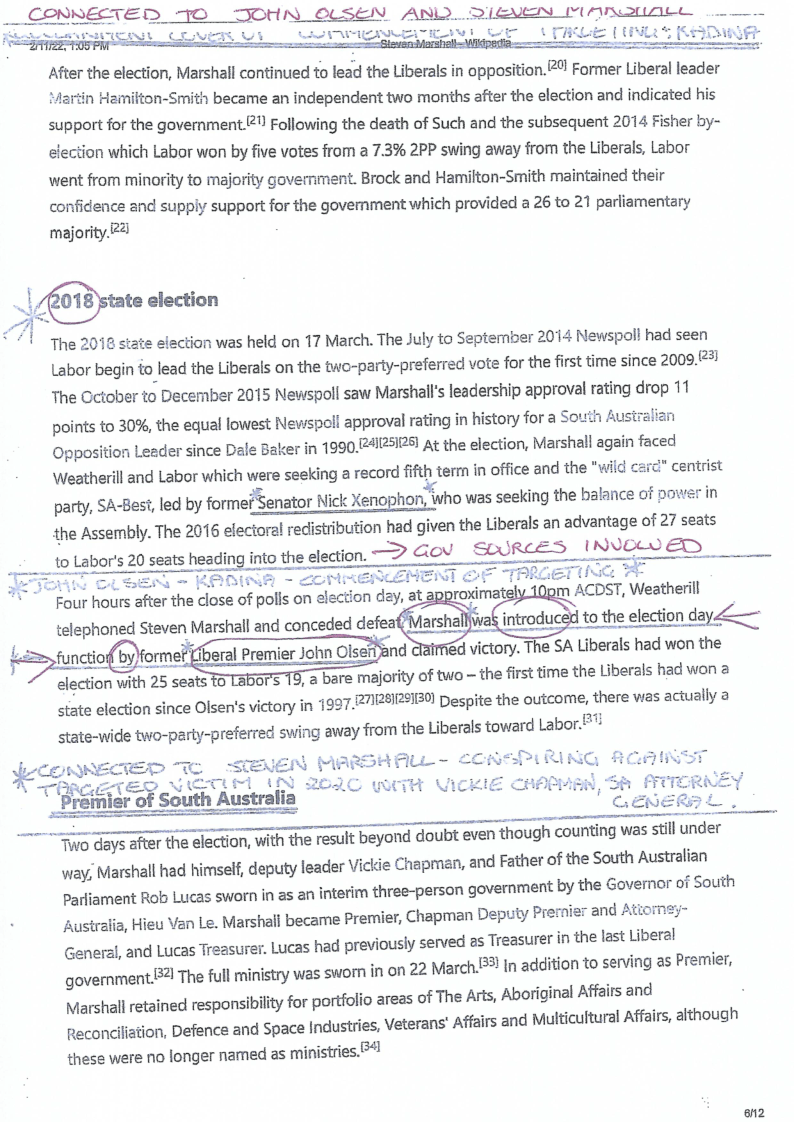 CONNECTED TO JOHN OLSEN AND STEVEN MARSHALL
COVER UP COMMENCEMENT OF TARGETING: KADINA
2/11/22, 1:05 PM Steven Marshall - Wikipedia
After the election, Marshall continued to lead the Liberals in opposition.[20] Former Liberal leader
Martin Hamilton-Smith became an independent two months after the election and indicated his
support for the government.[21] Following the death of Such and the subsequent 2014 Fisher by-
election which Labor won by five votes from a 7.3% 2PP swing away from the Liberals, Labor
went from minority to majority government. Brock and Hamilton-Smith maintained their
confidence and supply support for the government which provided a 26 to 21 parliamentary
majority.[22]
2018 state election
The 2018 state election was held on 17 March. The July to September 2014 Newspoll had seen
Labor begin to lead the Liberals on the two-party-preferred vote for the first time since 2009.[23]
The October to December 2015 Newspoll saw Marshall's leadership approval rating drop 11
points to 30%, the equal lowest Newspoll approval rating in history for a South Australian
Opposition Leader since Dale Baker in 1990.[24][25][26] At the election, Marshall again faced
Weatherill and Labor which were seeking a record fifth term in office and the "wild card" centrist
party, SA-Best, led by former Senator Nick Xenophon, who was seeking the balance of power in
the Assembly. The 2016 electoral redistribution had given the Liberals an advantage of 27 seats
to Labor's 20 seats heading into the election. → GOV SOURCES INVOLVED
* JOHN OLSEN - KADINA - COMMENCEMENT OF TARGETING *
Four hours after the close of polls on election day, at approximately 10pm ACDST, Weatherill
telephoned Steven Marshall and conceded defeat. Marshall was introduced to the election day
function by former Liberal Premier John Olsen and claimed victory. The SA Liberals had won the
election with 25 seats to Labor's 19, a bare majority of two – the first time the Liberals had won a
state election since Olsen's victory in 1997.[27][28][29][30] Despite the outcome, there was actually a
state-wide two-party-preferred swing away from the Liberals toward Labor.[31]
* CONNECTED TO STEVEN MARSHALL - CONSPIRING AGAINST
* TARGETED VICTIM IN 2020 WITH VICKIE CHAPMAN, SA ATTORNEY
GENERAL.
Premier of South Australia
Two days after the election, with the result beyond doubt even though counting was still under
way, Marshall had himself, deputy leader Vickie Chapman, and Father of the South Australian
Parliament Rob Lucas sworn in as an interim three-person government by the Governor of South
Australia, Hieu Van Le. Marshall became Premier, Chapman Deputy Premier and Attorney-
General, and Lucas Treasurer. Lucas had previously served as Treasurer in the last Liberal
government.[32] The full ministry was sworn in on 22 March.[33] In addition to serving as Premier,
Marshall retained responsibility for portfolio areas of The Arts, Aboriginal Affairs and
Reconciliation, Defence and Space Industries, Veterans' Affairs and Multicultural Affairs, although
these were no longer named as ministries.[34]
6/12